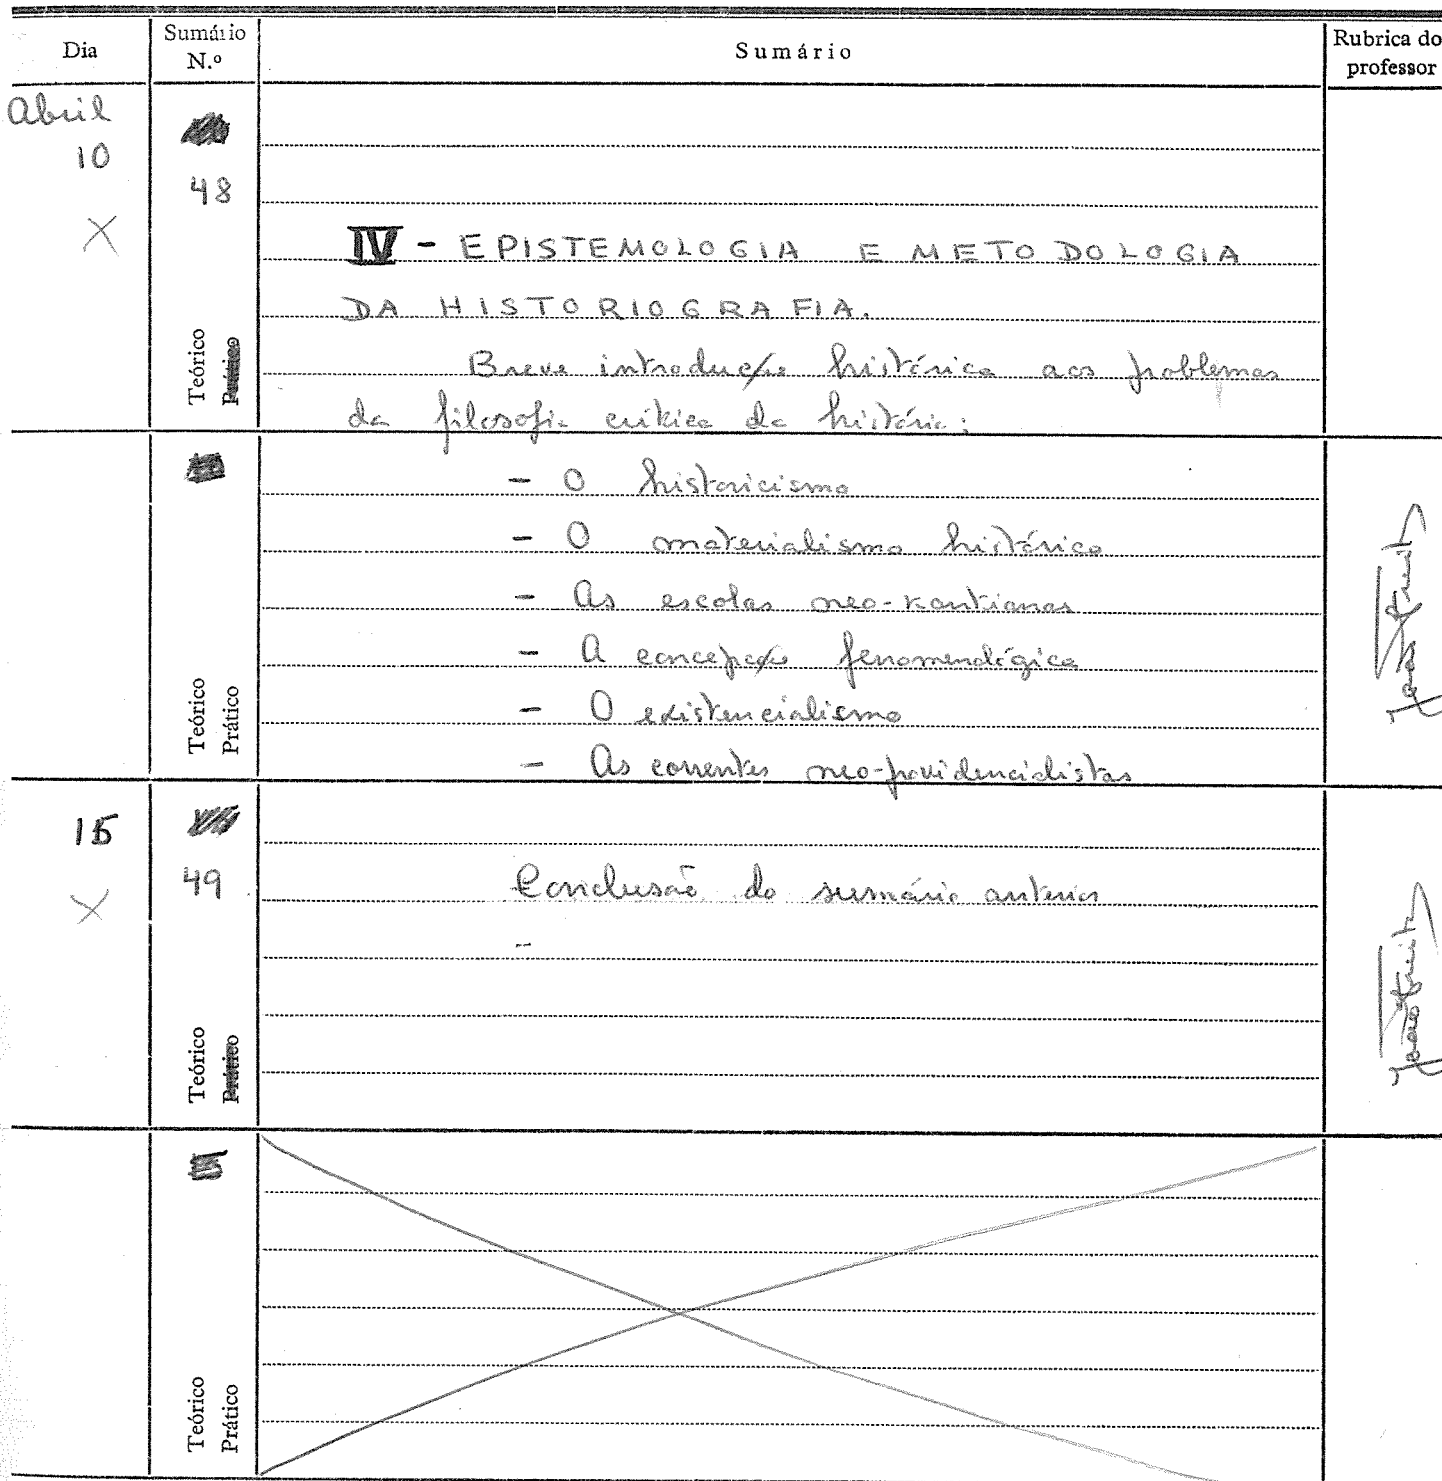 Dia
Sumário
N.º
Sumário
Rubrica do
professor
Abril
10
48
IV - EPISTEMOLOGIA E METODOLOGIA
DA HISTORIOGRAFIA.
Teórico
Prático
Breve introdução histórica aos problemas
da filosofia crítica da história:
- O historicismo
- O materialismo histórico
- As escolas neo-kantianas
- A concepção fenomenológica
- O existencialismo
- As correntes neo-providencialistas
Teórico
Prático
15
49
Conclusão do sumário anterior
-
Teórico
Prático
Teórico
Prático